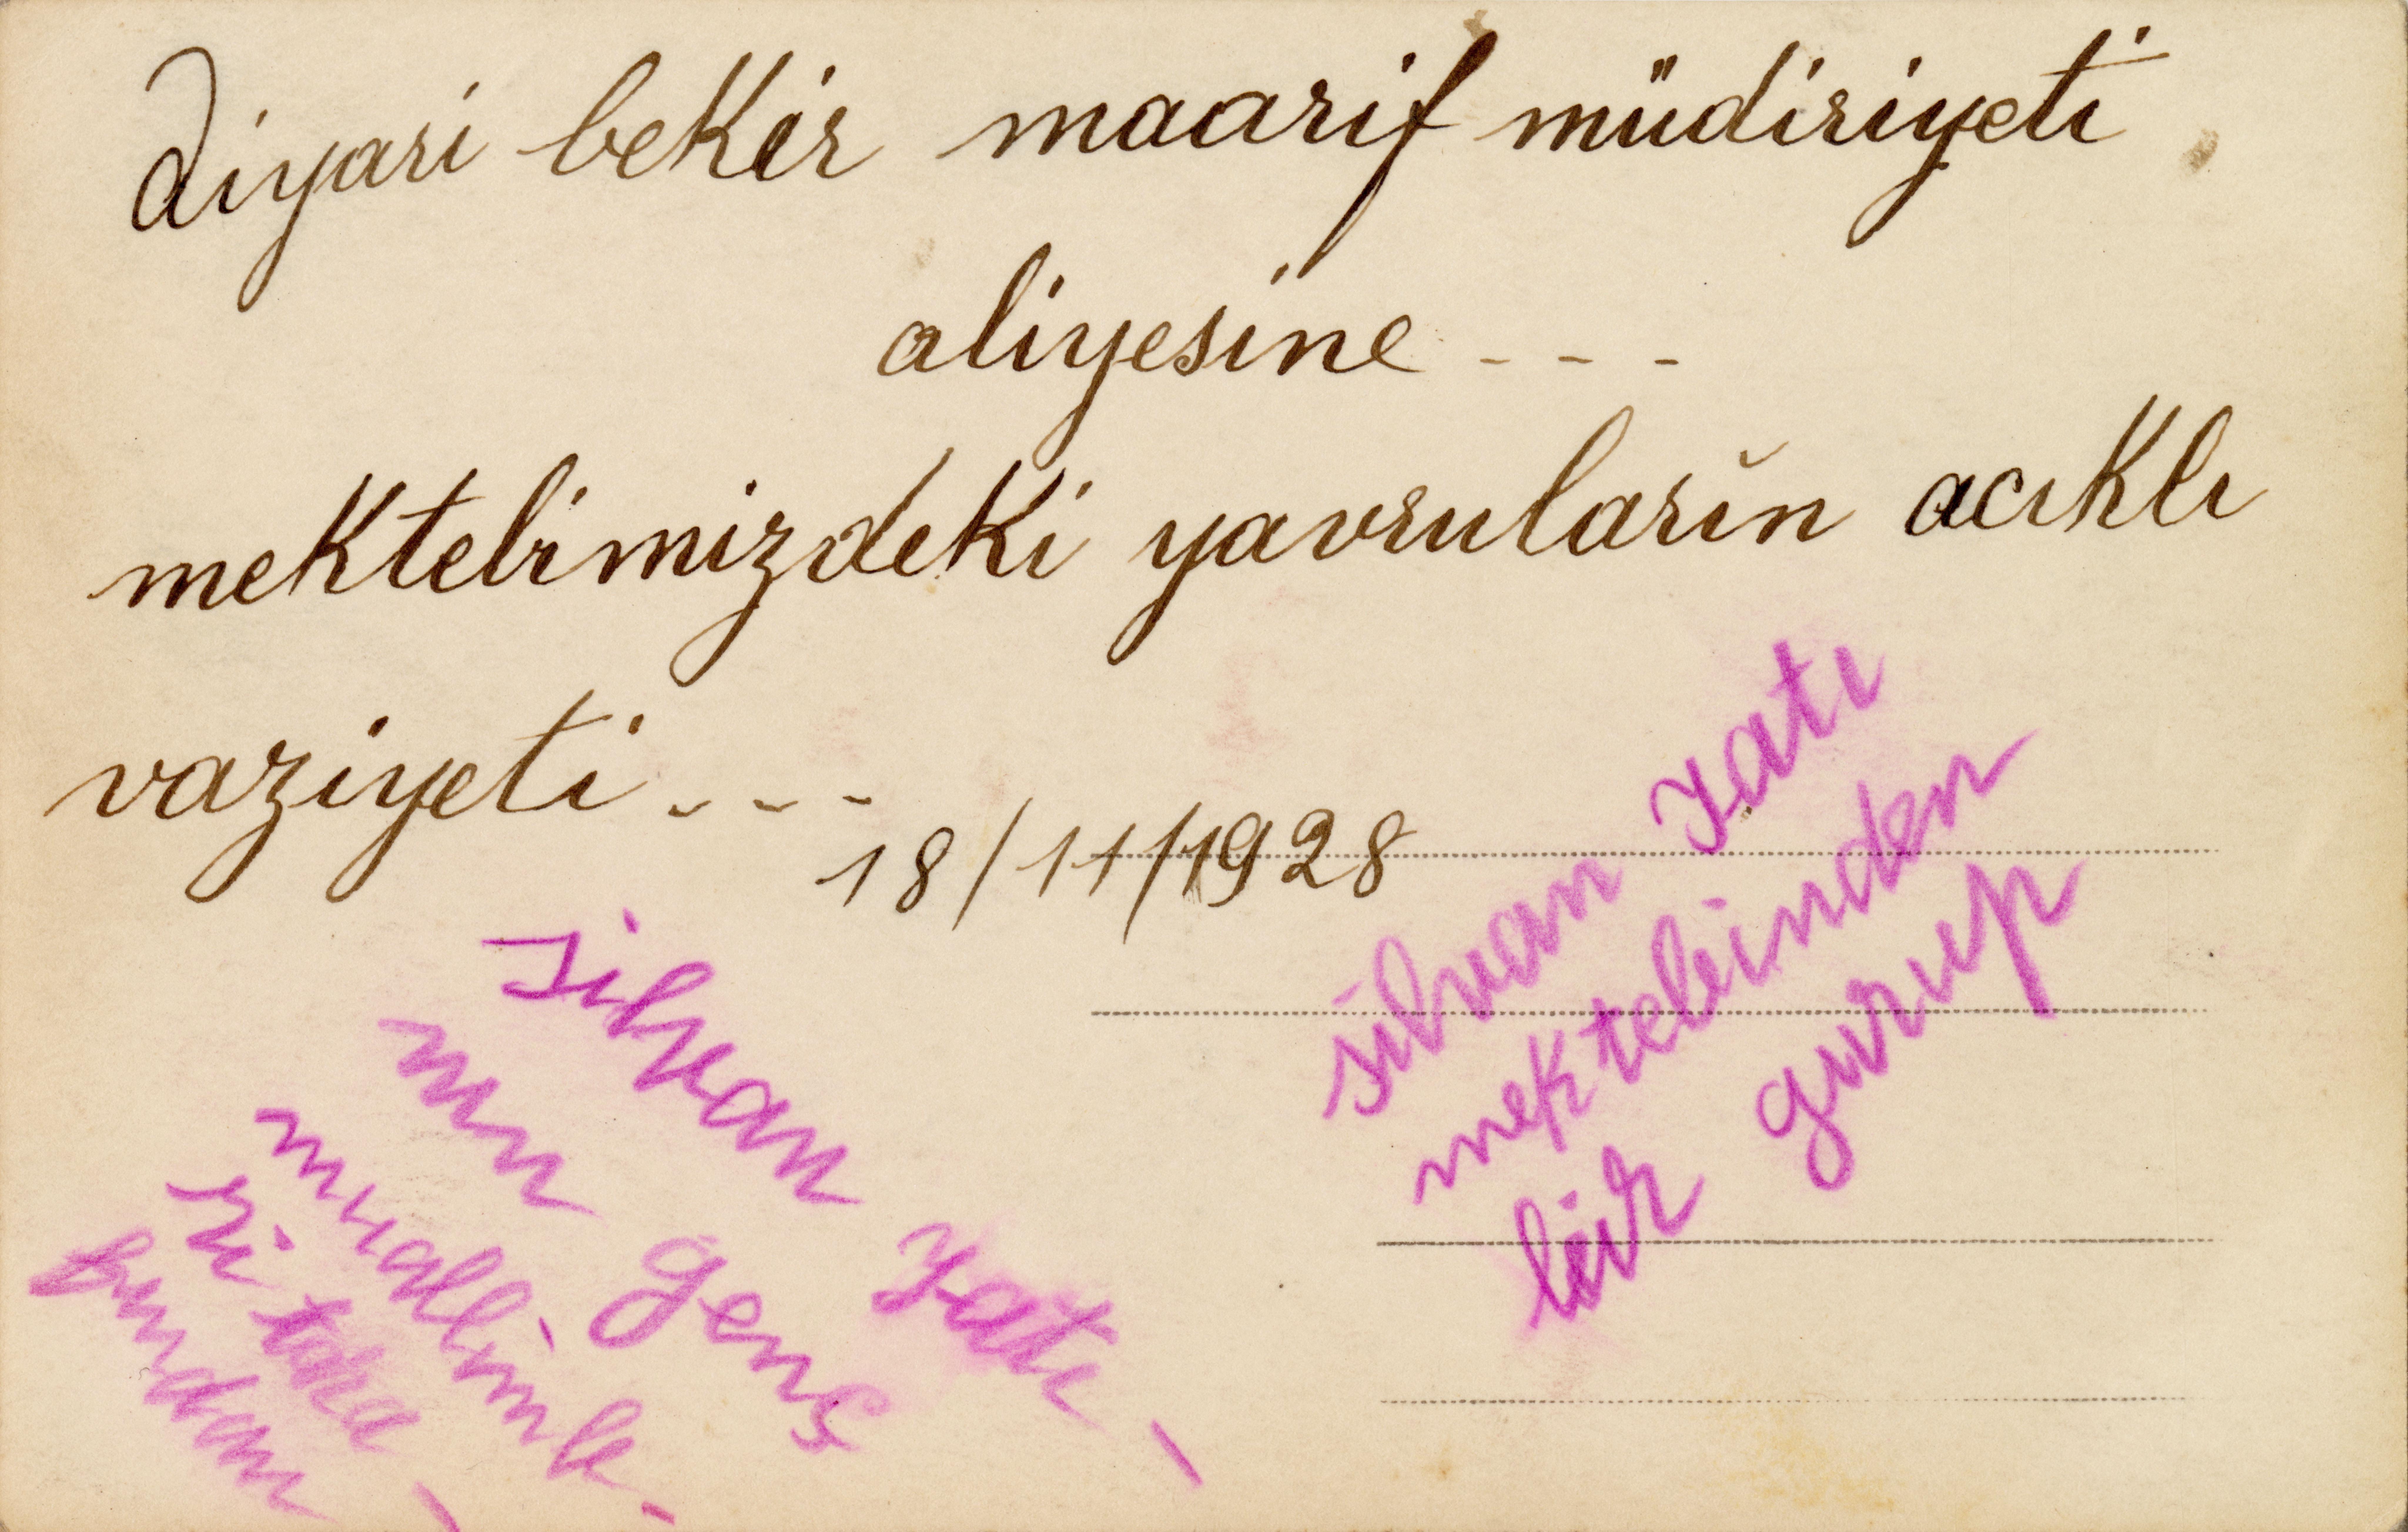 Diyari bekir maarif müdiriyeti
aliyesine - - -
mektebimizdeki yavruların acıklı
vaziyeti - - -
18/11/1928
silvan Yatı
mektebinden
bir gurup
silvan Yatı -
nın genç
muallimle -
ri tara -
fından